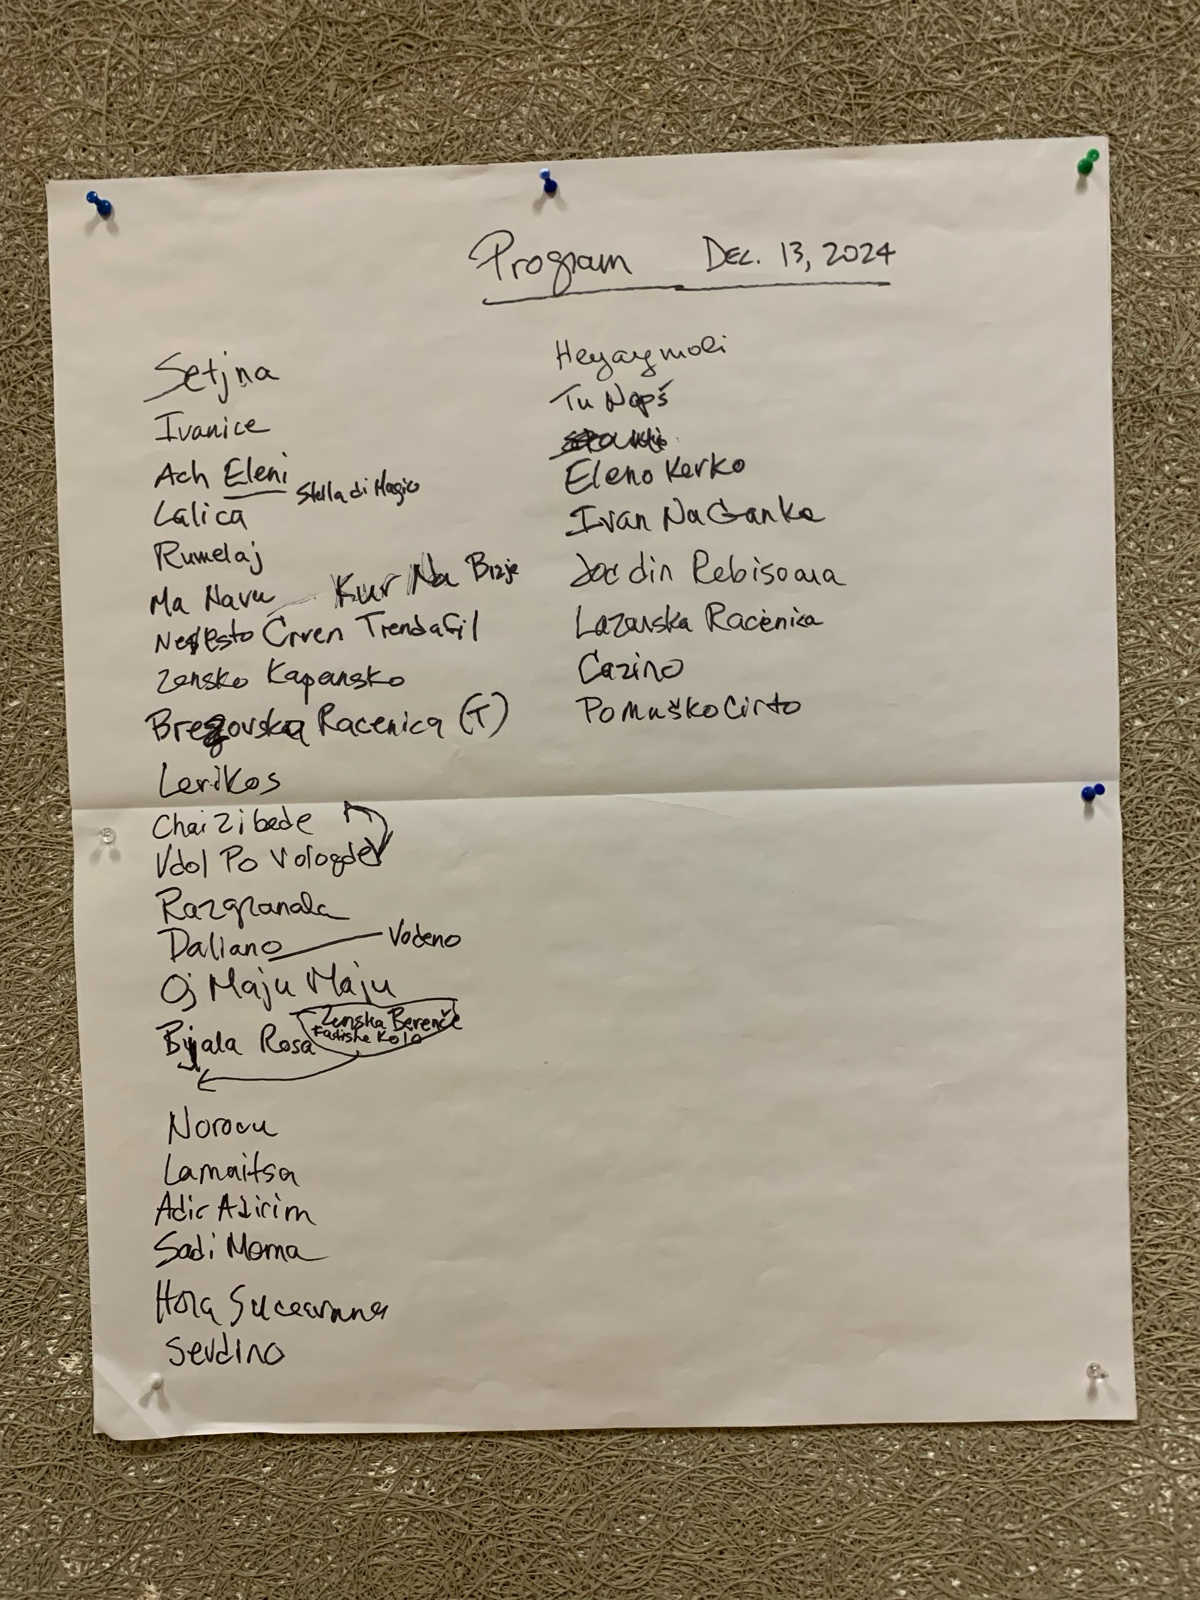 Program Dec. 13, 2024
Setjna
Ivanice
Ach Eleni
Stella di Magio
Lalica
Rumelaj
Ma Navu Kur Na Bizje
Nevesto Crven Trendafil
Zensko Kapansko
Brezovska Racenica (T)
Lerikos
Chai Zibede
Vdol Po Vologde
Razgranala
Daliano Vodeno
Oj Maju Maju
Zenska Berenče
Bijala Rosa Fatishe Kolo
Norocu
Lamaitsa
Adir Adirim
Sadi Moma
Hora Suceavana
Sevdino
Heyaymoli
Tu Napš
Eleno Kerko
Ivan Na Ganka
Joc din Rebisoara
Lazarska Racenica
Cazino
Pomaško Cirto